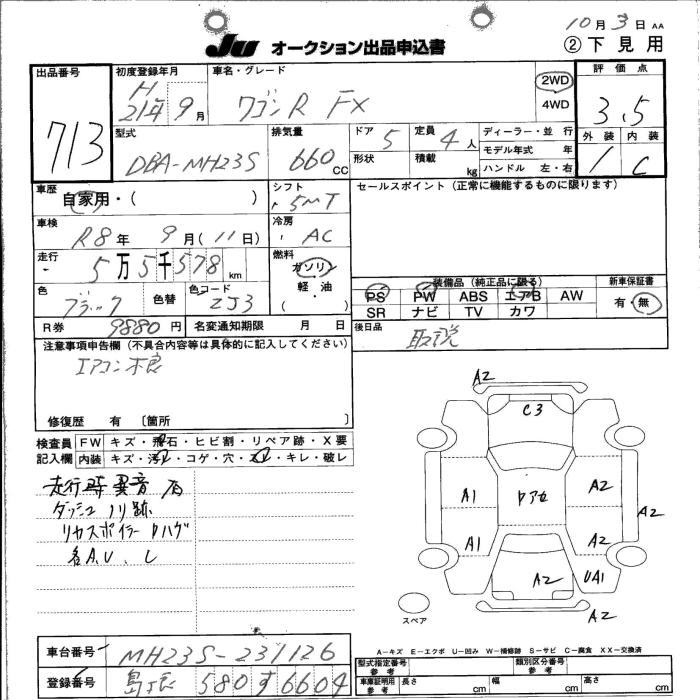 10月3日 AA
JU オークション出品申込書
② 下見用
出品番号
713
初度登録年月
H
21年9月
車名・グレード
ワゴンR FX
2WD
4WD
評価点
3.5
外装 内装
1 C
型式
DBA-MH23S
排気量
660 CC
ドア 5
形状
定員 4人
積載 kg
ディーラー・並行
モデル年式 年
ハンドル 左・右
車歴
自家用・( )
シフト
5MT
セールスポイント(正常に機能するものに限ります)
車検
R8年 9月(11日)
冷房
AC
走行
5万5千578km
燃料
ガソリン
軽・油
( )
色
ブラック
色替
色コード
ZJ3
装備品(純正品に限る)
PS PW ABS エアB AW
SR ナビ TV カワ
新車保証書
有・無
R券 9880円
名変通知期限 月 日
後日品
取説
注意事項申告欄(不具合内容等は具体的に記入してください)
エアコン不良
修復歴 有 〔箇所 〕
検査員
記入欄
FW キズ・飛石・ヒビ割・リペア跡・X要
内装 キズ・汚レ・コゲ・穴・スレ・キレ・破レ
走行時異音 有
ダッシュ ノリ跡
リヤスポイラー ハゲ
各A.U.
A2
C3
A1
A2
A2
A1
A2
A2
UA1
A2
スペア
A-キズ E-エクボ U-凹み W-補修跡 S-サビ C-腐食 XX-交換済
車台番号
MH23S-231126
登録番号
580 す 6604
型式指定番号
参考
類別区分番号
参考
車庫証明用
参考
長さ cm
幅 cm
高さ cm